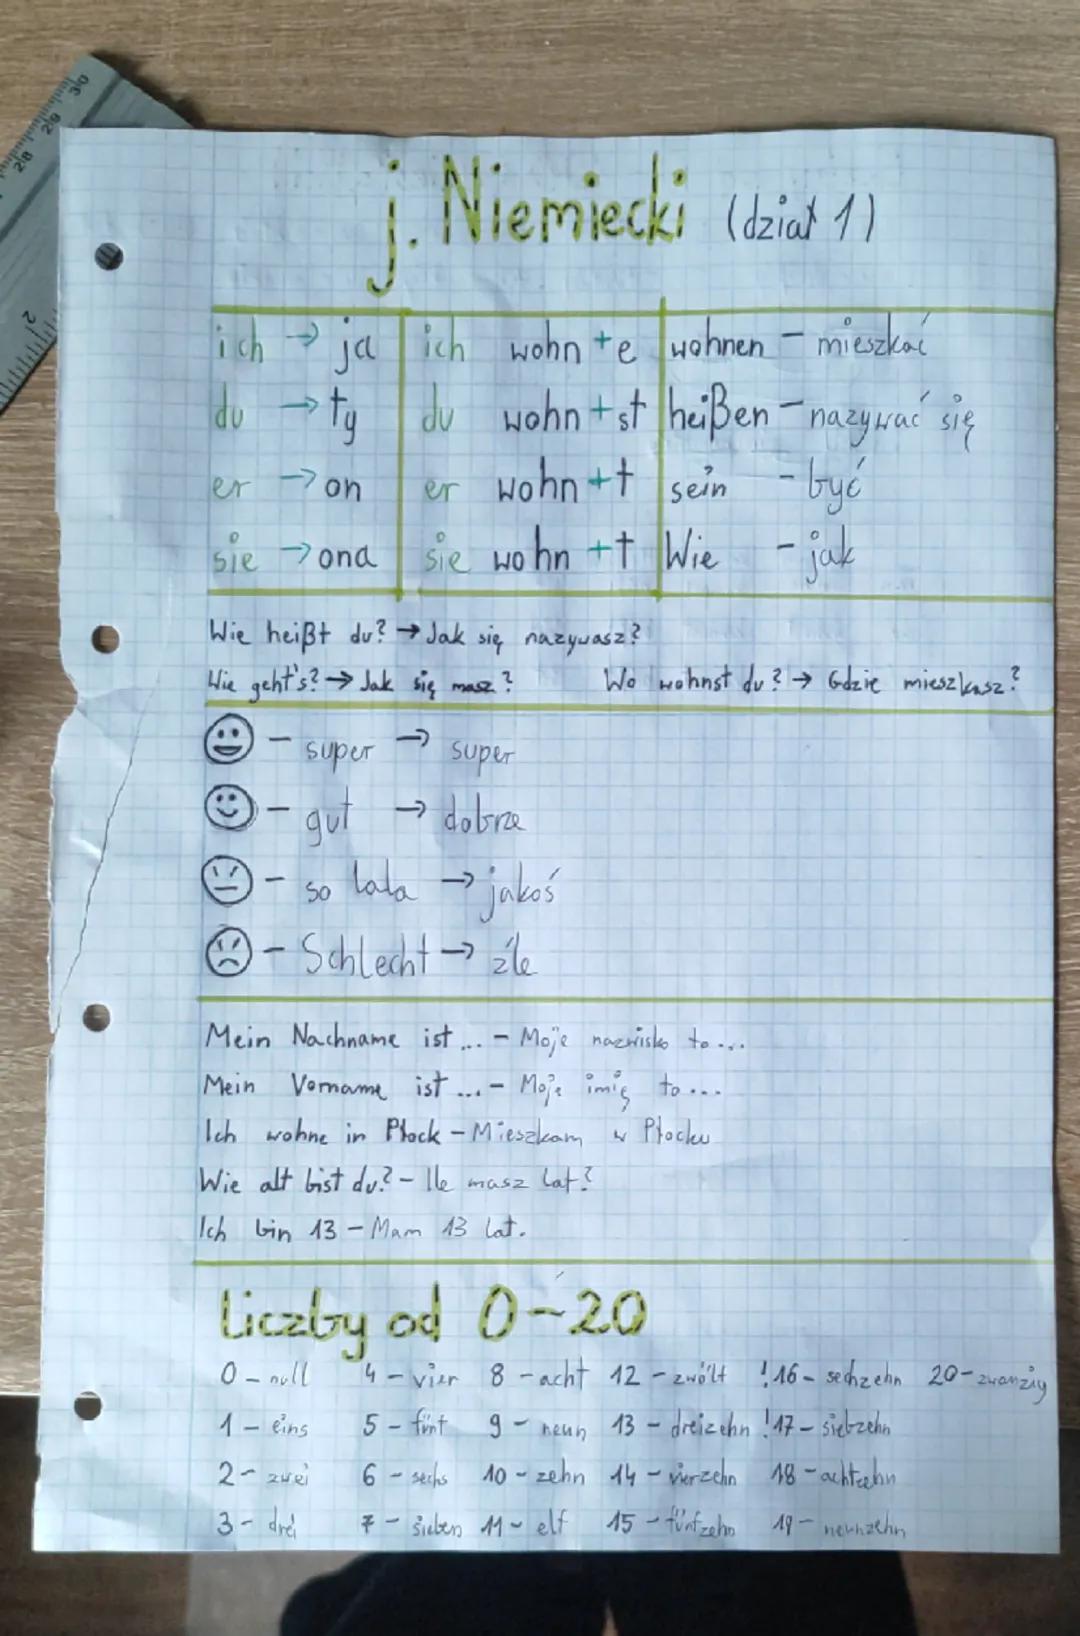 j. Niemiecki (dział 1)
ich → ja ich wohn +e wohnen – mieszkać
du → ty du wohn +st heißen – nazywać się
er → on er wohn +t sein – być
sie → ona sie wohn +t Wie – jak
Wie heißt du? → Jak się nazywasz?
Wie geht's? → Jak się masz? Wo wohnst du? → Gdzie mieszkasz?
– super → super
– gut → dobrze
– so lala → jakoś
– Schlecht → źle
Mein Nachname ist ... – Moje nazwisko to ...
Mein Vorname ist ... – Moje imię to ...
Ich wohne in Płock – Mieszkam w Płocku
Wie alt bist du? – Ile masz lat?
Ich bin 13 – Mam 13 lat.
Liczby od 0–20
0 – null 4 – vier 8 – acht 12 – zwölt !16 – sechzehn 20 – zwanzig
1 – eins 5 – fünt 9 – neun 13 – dreizehn !17 – siebzehn
2 – zwei 6 – sechs 10 – zehn 14 – vierzehn 18 – achtzehn
3 – drei 7 – sieben 11 – elf 15 – füntzehn 19 – neunzehn
2
28 29 30